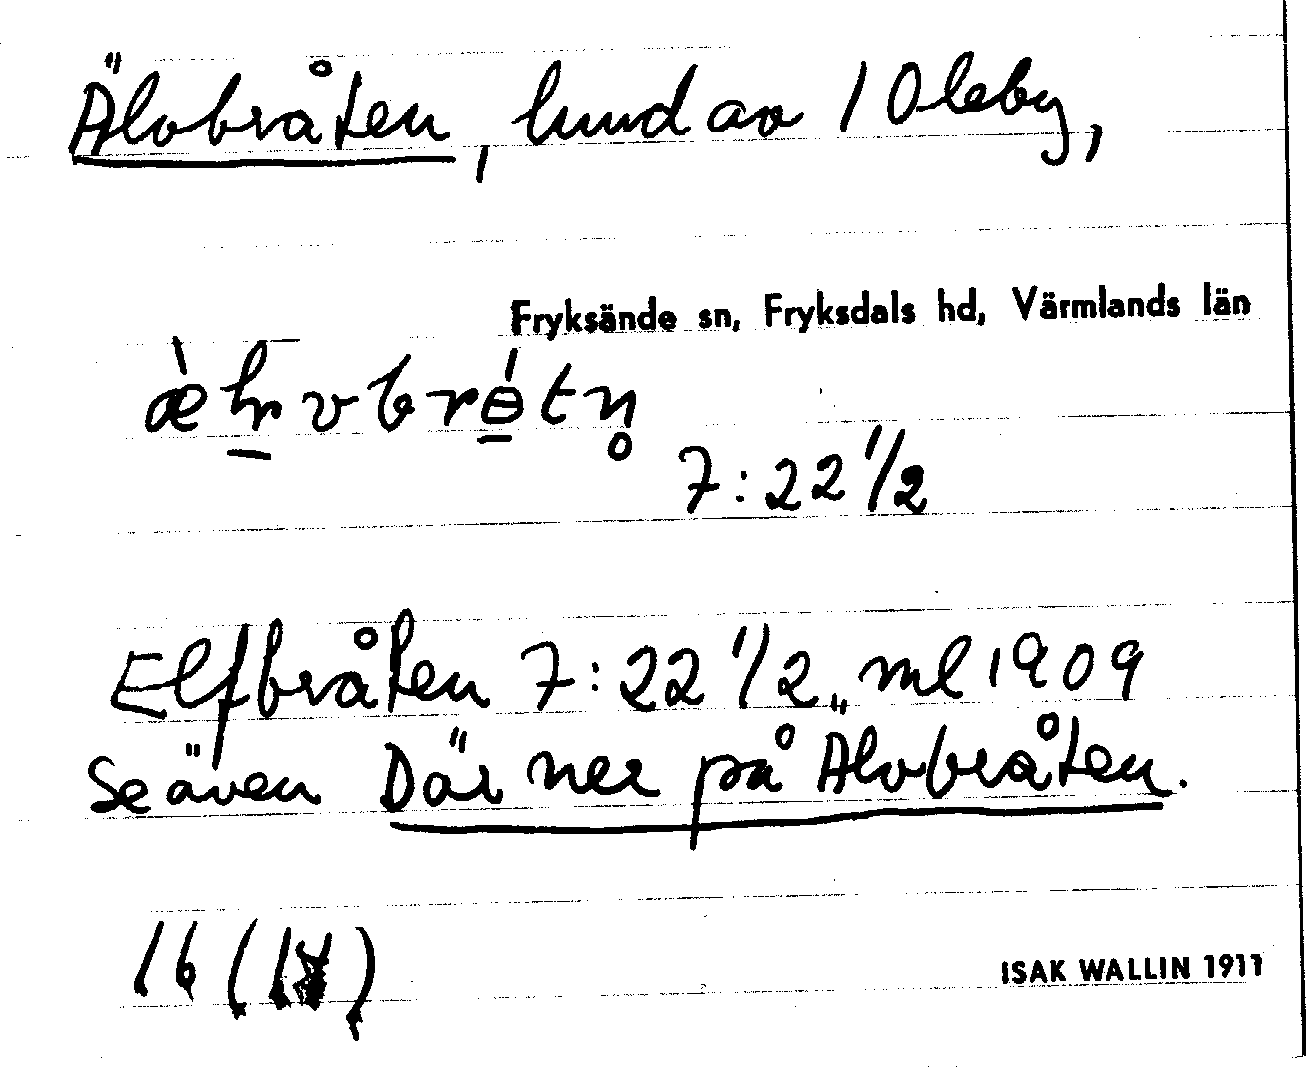 Älvbråten, hmd av 1 Oleby,
Fryksände sn, Fryksdals hd, Värmlands län
7:22 1/2
Elfbråten 7:22 1/2 „ ml 1909
Se även Där ner på Älvbråten.
16 (
ISAK WALLIN 1911